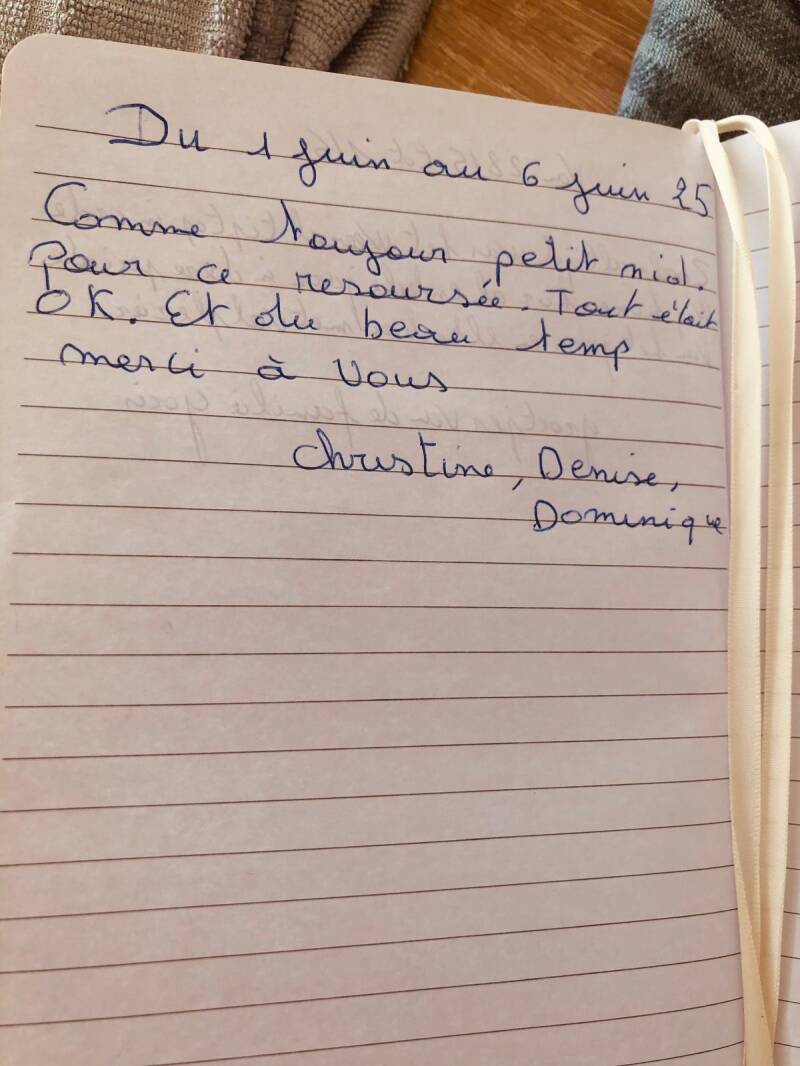 Du 1 juin au 6 juin 25
Comme toujour petit nid.
Pour ce resoursée. Tout était
OK. Et du beau temp
merci à vous
Christine, Denise,
Dominique